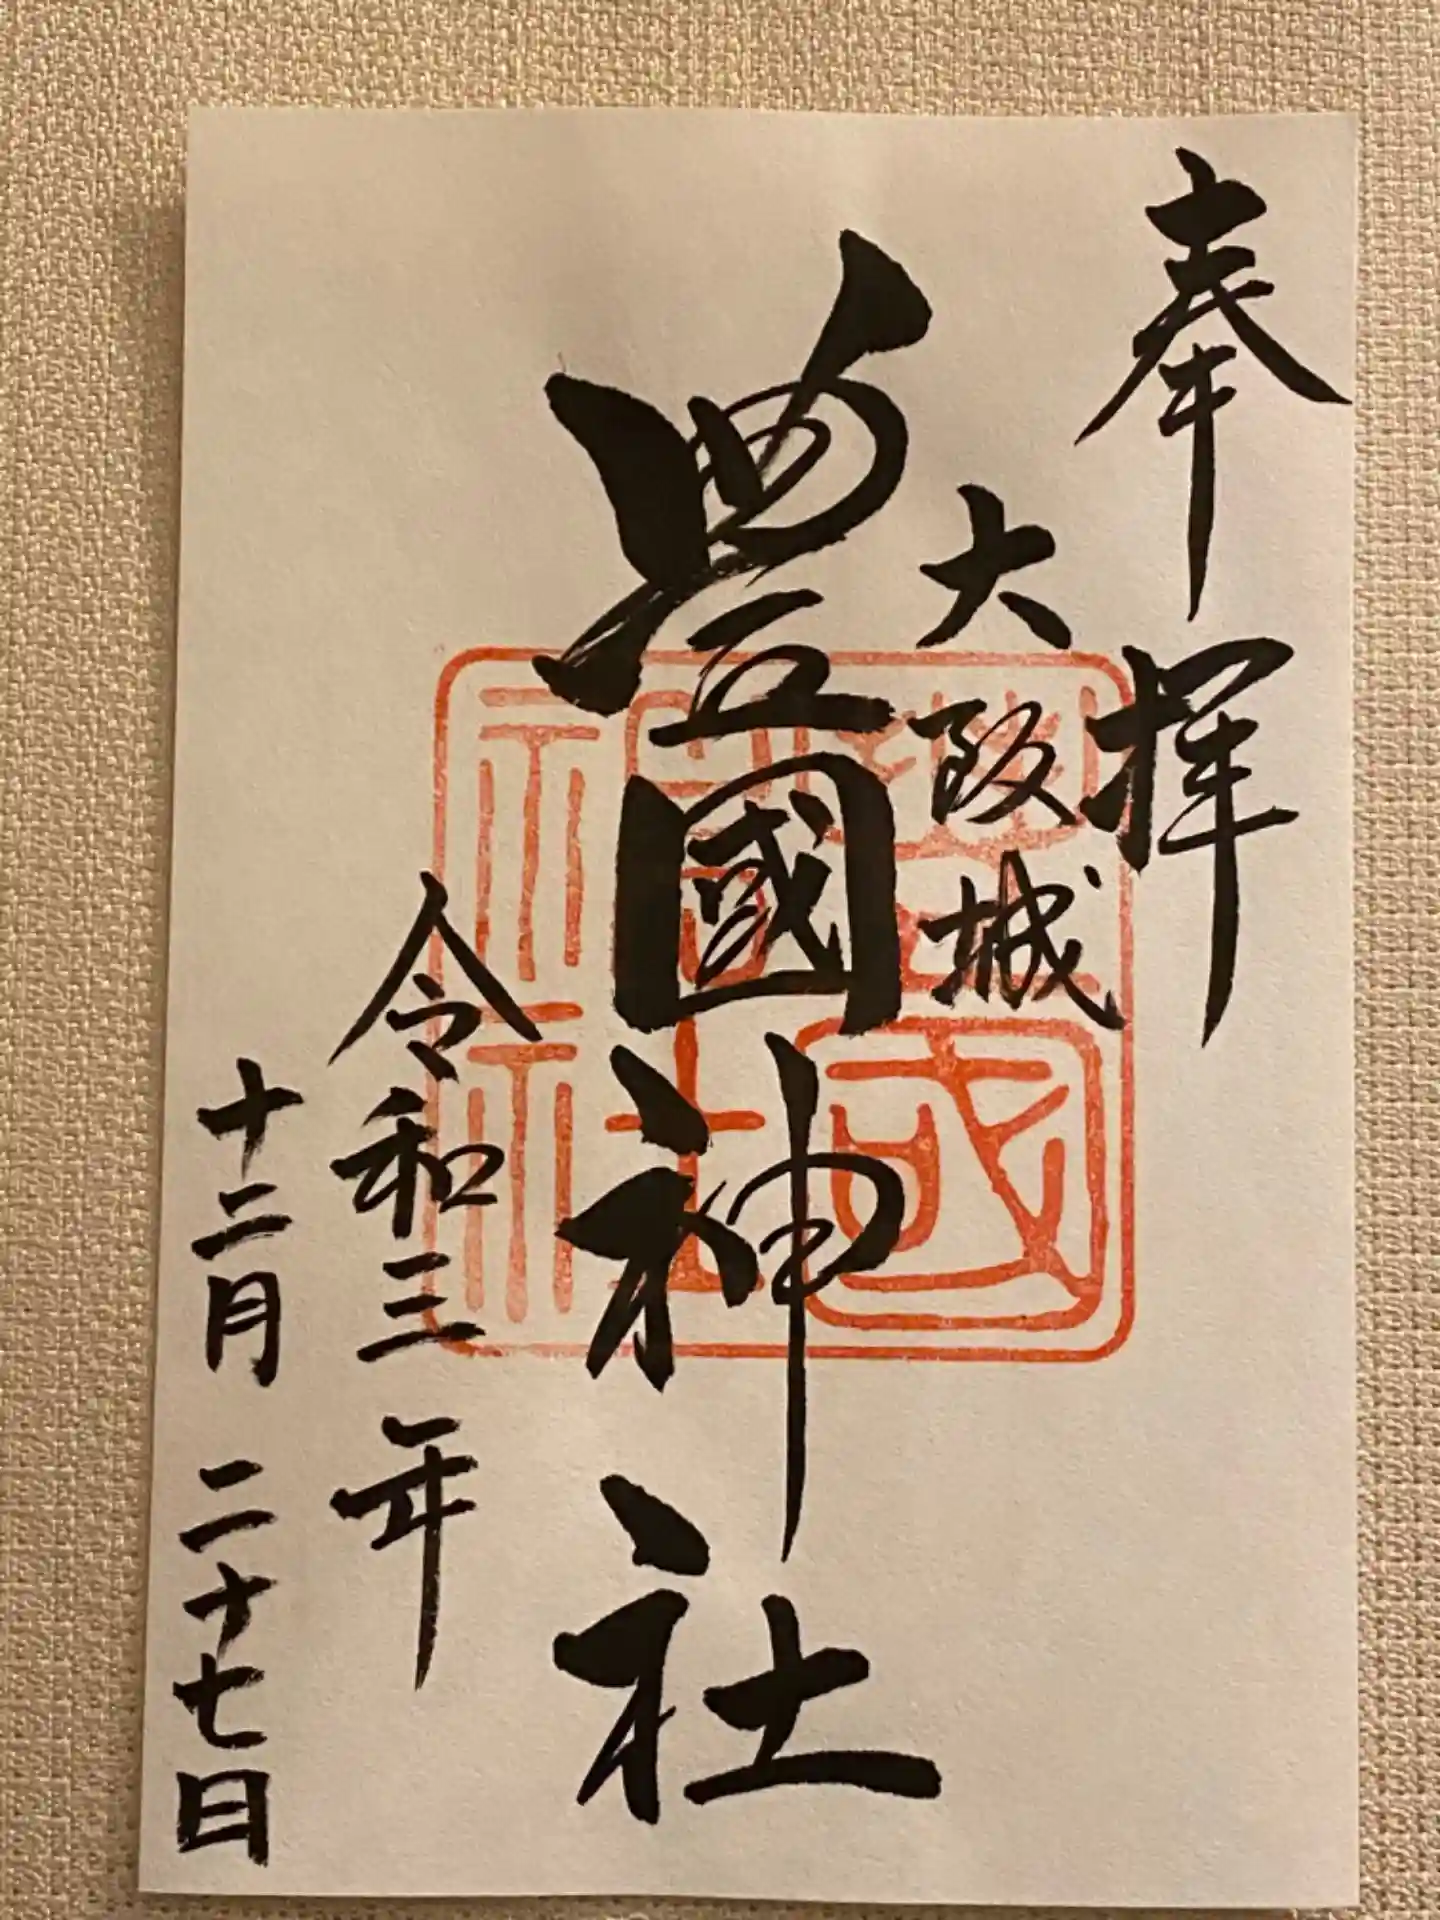 奉拝
大阪城
豊國神社
令和三年
十二月二十七日
豊國神社